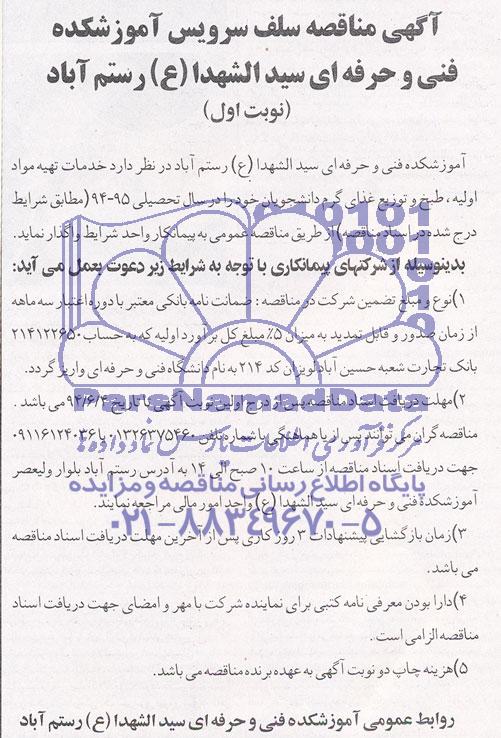 آگهی مناقصه سلف سرویس آموزشکده
فنی و حرفه ای سید الشهدا (ع) رستم آباد
(نوبت اول)
آموزشکده فنی و حرفه ای سید الشهدا (ع) رستم آباد در نظر دارد خدمات تهیه مواد
اولیه ، طبخ و توزیع غذای گرم دانشجویان خود را در سال تحصیلی ۹۵-۹۴ (مطابق شرایط
درج شده در اسناد مناقصه) از طریق مناقصه عمومی به پیمانکار واحد شرایط واگذار نماید.
بدینوسیله از شرکتهای پیمانکاری با توجه به شرایط زیر دعوت بعمل می آید:
۱)نوع و مبلغ تضمین شرکت در مناقصه : ضمانت نامه بانکی معتبر با دوره اعتبار سه ماهه
از زمان صدور و قابل تمدید به میزان ۵٪ مبلغ کل برآورد اولیه که به حساب ۲۱۴۱۲۲۶۵۰
بانک تجارت شعبه حسین آباد لویزان کد ۲۱۴ به نام دانشگاه فنی و حرفه ای واریز گردد.
۲)مهلت دریافت اسناد مناقصه پس از درج اولین نوبت آگهی تا تاریخ ۹۴/۶/۴ می باشد .
مناقصه گران می توانند پس از با هماهنگی با شماره تلفن ۰۱۳۲۶۳۷۵۴۶۰ یا ۰۹۱۱۶۱۲۴۰۳۶
جهت دریافت اسناد مناقصه از ساعت ۱۰ صبح الی ۱۴ به آدرس رستم آباد بلوار ولیعصر
آموزشکده فنی و حرفه ای سید الشهدا (ع) واحد امور مالی مراجعه نمایند.
۳)زمان بازگشایی پیشنهادات ۳ روز کاری پس از آخرین مهلت دریافت اسناد مناقصه
می باشد.
۴)دارا بودن معرفی نامه کتبی برای نماینده شرکت با مهر و امضای جهت دریافت اسناد
مناقصه الزامی است .
۵)هزینه چاپ دو نوبت آگهی به عهده برنده مناقصه می باشد.
روابط عمومی آموزشکده فنی و حرفه ای سید الشهدا (ع) رستم آباد
ParsNamadData
مرکز فرآوری اطلاعات پارس نماد داده ها
پایگاه اطلاع رسانی مناقصه و مزایده
۰۲۱-۸۸۳۴۹۶۷۰-۵